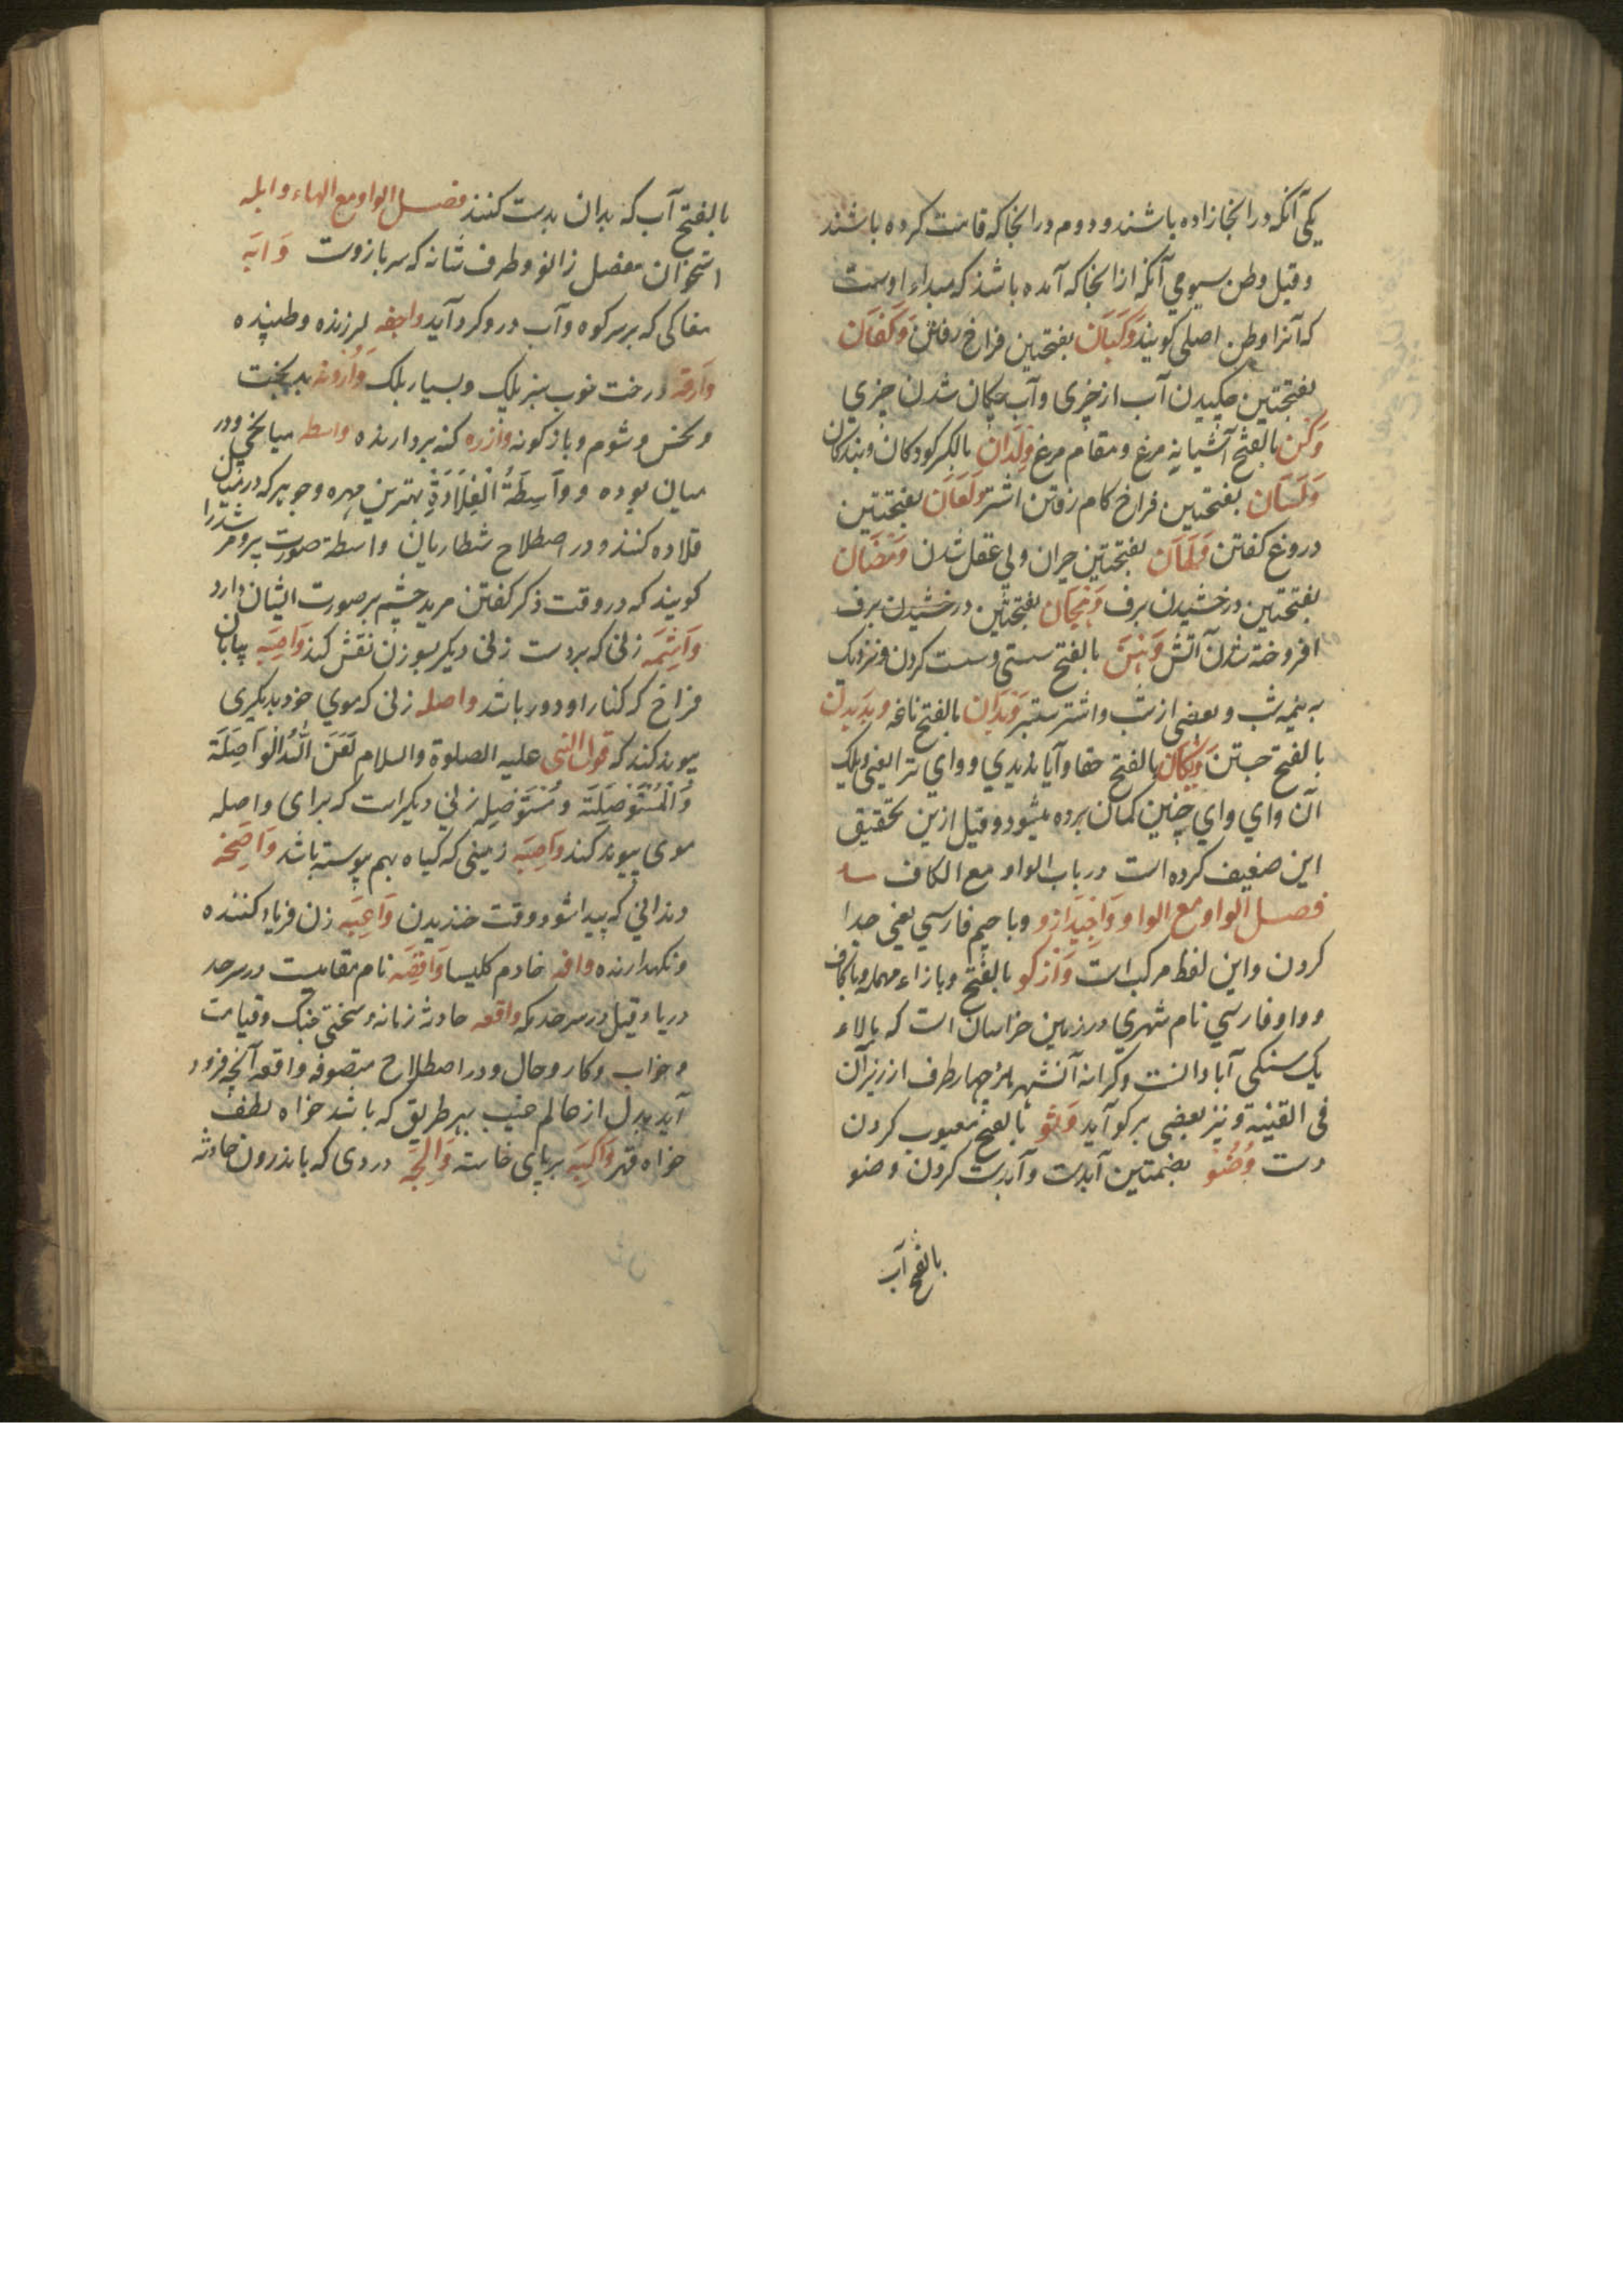 یکی آنکه در آنجا زاده باشند و دوم در آنجا که قامت کرده باشند
و قیل وطن سیومی آنکه از آنجا که آمده باشد که مبداء اوست
که آنرا وطن اصلی کویند وَکَبَان بفتحتین فراخ رفتن وَکَفَان
بفتحتین چکیدن آب از چیزی و آب چکان شدن چیزی
وَکْن بالفتح آشیانه مرغ و مقام مرغ وِلْدَان بالکسر کودکان و بندکان
وَلَسَان بفتحتین فراخ کام رفتن اشتر وَلَعَان بفتحتین
دروغ کفتن وَلَهَان بفتحتین حیران و بی عقل شدن وَمَضَان
بفتحتین درخشیدن برف وَهَجَان بفتحتین درخشیدن برف
افروخته شدن آتش وَهْن بالفتح سستی و سست کردن و نزدیک
به نیمه شب و بعضی از شب و اشتر ستبر وَیْدَان بالفتح ناغه ویدیدن
بالفتح جستن وَیْکَان بالفتح حقا و آیا ندیدی و وای ترا یعنی ویلک
آن وای وای چنین کمان برده میشود و قیل ازین تحقیق
این ضعیف کرده است در باب الواو مع الکاف
فصل الواو مع الواو وَاچیدازو و با جیم فارسی یعنی جدا
کردن و این لفظ مرکب است وَازکو بالفتح و با زاء مهمله و با کاف
و واو فارسی نام شهری در زمین خراسان است که بالاء
یک سنکی آبادانست و کرانه آنشهر از چهار طرف از زیر آن
فی القنیة و نیز بعضی بر کو آید وَثْو بالفتح معیوب کردن
دست وُضُو بضمتین آبدست و آبدست کردن وضو
بالفتح آب
بالفتح آب که بدان بدست کنند فصل الواو مع الهاء وابله
استخوان مفصل زانو و طرف شانه که سر بازوست وَابَه
مغاکی که بر سر کوه و آب درو کرد آید واجفه لرزنده و طپنده
وَارقه درخت خوب سبز برک و بسیار برک وَارُونه بدبخت
و نحس و شوم و بازکونه وازره کنه بردارنده واسطه میانجی و در
میان بوده و وَاسِطَةُ الْقِلَادَةِ بهترین مهره و جوهر که در میان
قلاده کنند و در اصطلاح شطاریان واسطه صورت پیر و مرشد را
کویند که در وقت ذکر کفتن مرید چشم بر صورت ایشان دارد
وَاشِمَه زنی که بر دست زنی دیکر بسوزن نقش کند وَاصِیَه بیابان
فراخ که کنار او دور باشد واصله زنی که موی خود بدیکری
پیوند کند که قول النبی علیه الصلوة والسلام لَعَنَ اللّٰهُ الْوَاصِلَة
وَالْمُسْتَوْصِلَة و مُسْتَوْصِلِه زنی دیکر است که برای واصله
موی پیوند کند وَاصِیَه زمینی که کیاه بهم پیوسته باشد وَاضِحَه
دندانی که پیدا شود وقت خندیدن وَاعِیَه زن فریاد کننده
و نکهدارنده وافه خادم کلیسا وَاقِصَه نام مقامیست در سرحد
دریا و قیل در سرحد مکه واقعه حادثه زمانه و سختی جنک و قیامت
و خواب و کار و حال و در اصطلاح متصوفه واقعه آنچه فرود
آید بدل از عالم غیب بهر طریق که باشد خواه لطف
خواه قهر وَاکِبَه بر پای خاسته وَالِجَه دردی که باندرون حادثه